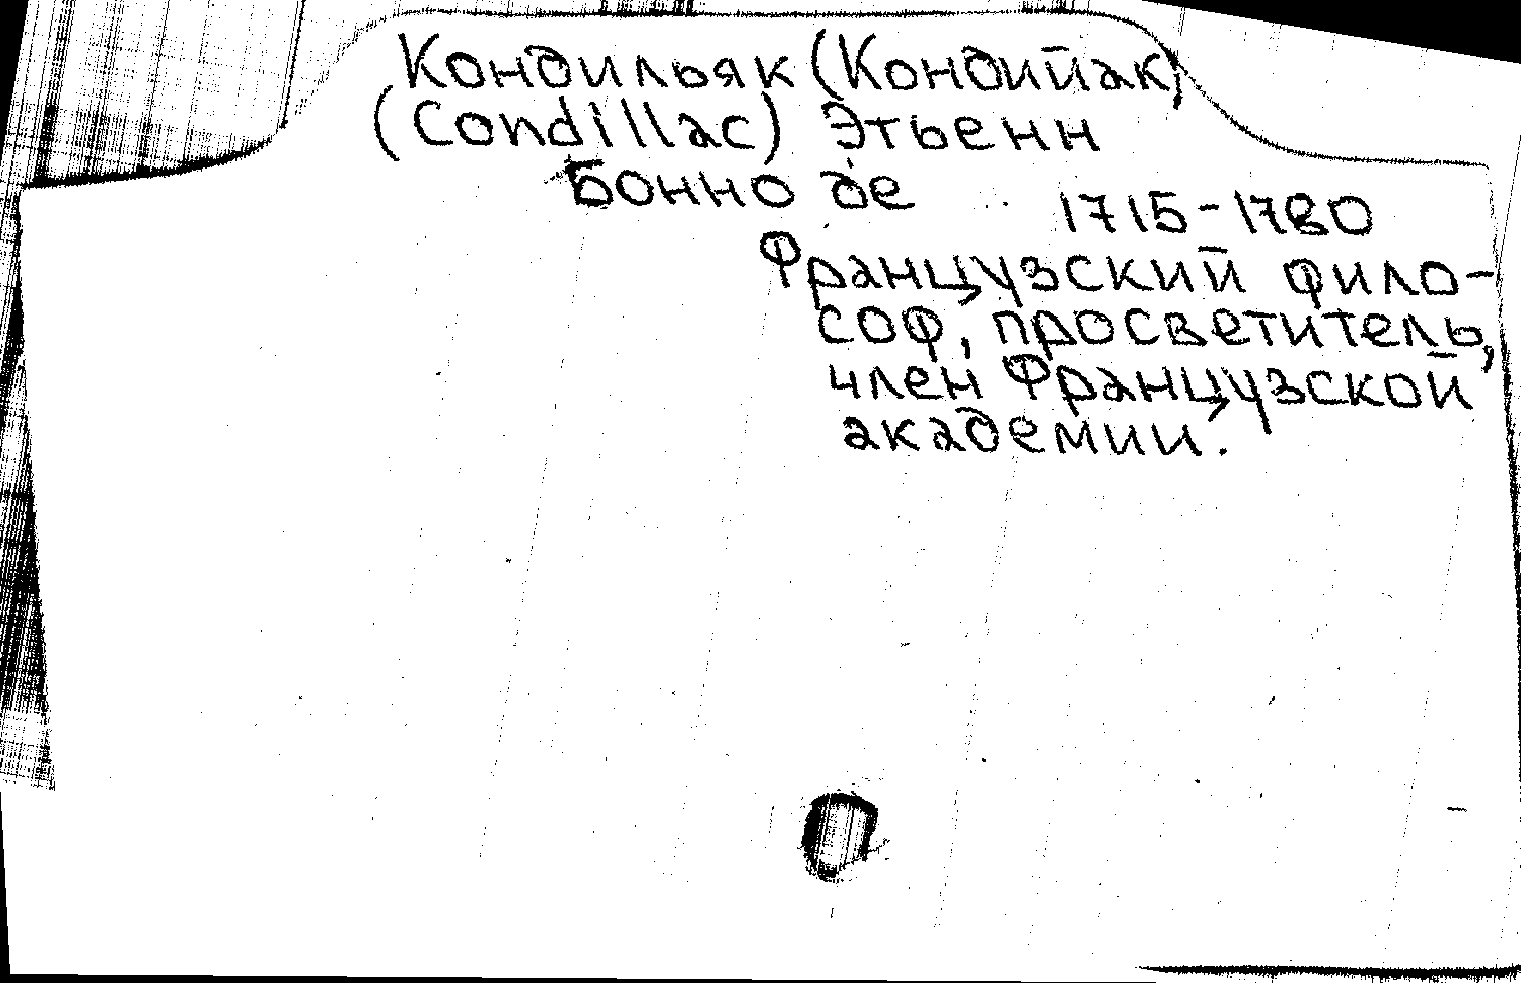 Кондильяк (Кондийак)
(Condillac) Этьенн
Бонно де
1715-1780
Французский фило-
соф, просветитель,
член Французской
академии.